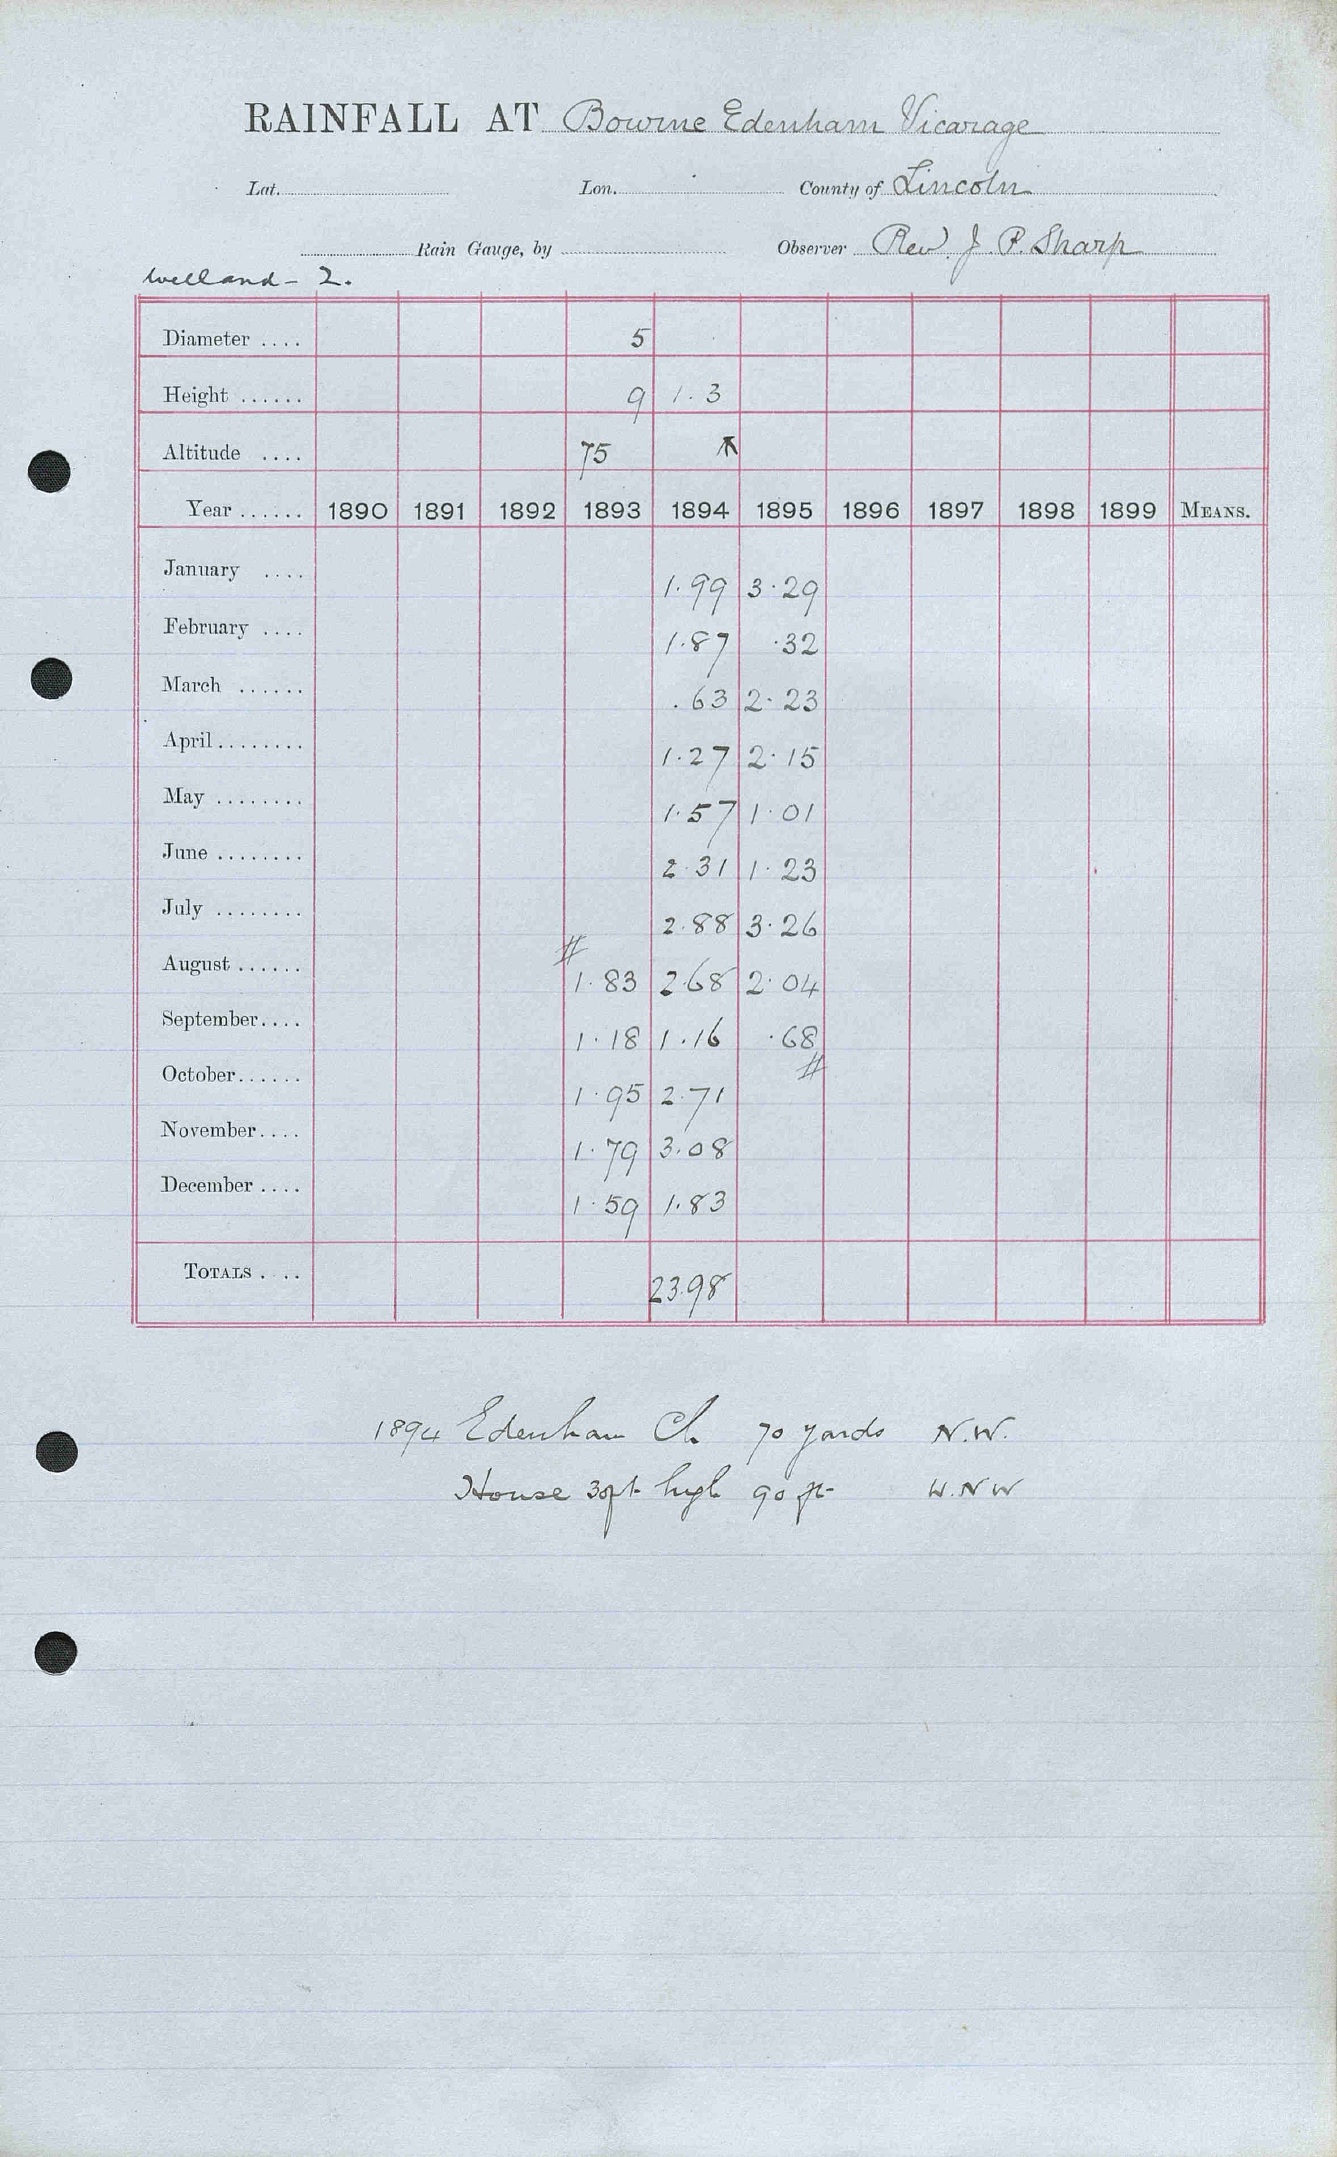 RAINFALL AT Bourne Edenham Vicarage
Lat. Lon. County of Lincoln
Rain Gauge, by Observer Rev. J. P. Sharp
Welland - 2.
Diameter .... 5
Height ...... 9 1.3
Altitude .... 75
Year ...... 1890 1891 1892 1893 1894 1895 1896 1897 1898 1899 MEANS.
January .... 1.99 3.29
February .... 1.87 .32
March ...... .63 2.23
April ........ 1.27 2.15
May ........ 1.57 1.01
June ........ 2.31 1.23
July ........ 2.88 3.26
#
August ...... 1.83 2.68 2.04
September.... 1.18 1.16 .68
#
October...... 1.95 2.71
November.... 1.79 3.08
December .... 1.59 1.83
TOTALS .... 23.98
1894 Edenham Ch. 70 yards N.W.
House 30ft high 90 ft W.N.W